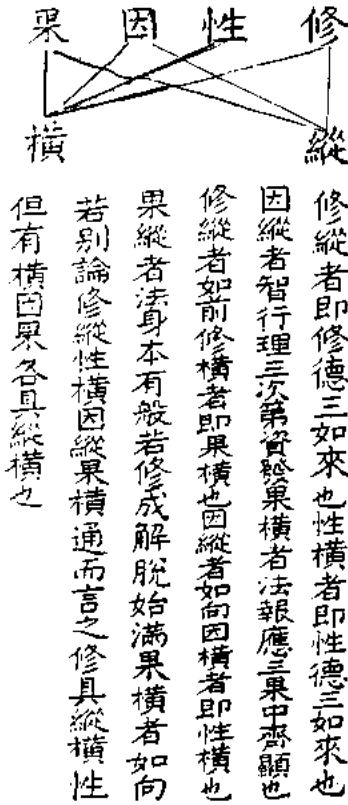 修性因果
縱橫
修縱者即修德三如來也性橫者即性德三如來也
因縱者智行理三次第資發果橫者法報應三果中齊顯也
修縱者如前修橫者即果橫也因縱者如向因橫者即性橫也
果縱者法身本有般若修成解脫始滿果橫者如向
若別論修縱性橫因縱果橫通而言之修具縱橫性
但有橫因果各具縱橫也